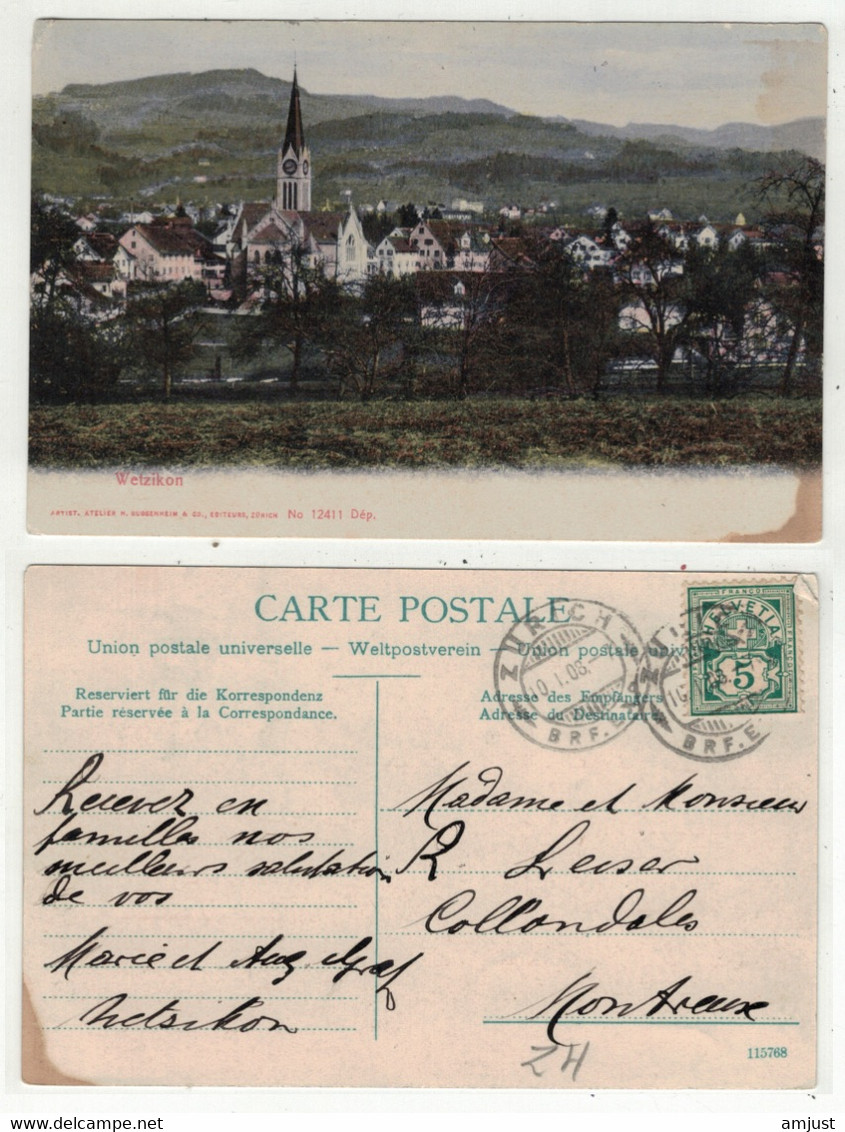 Wetzikon
ARTIST. ATELIER H. GUGGENHEIM & CO., EDITEURS, ZÜRICH No 12411 Dép.
CARTE POSTALE
Union postale universelle — Weltpostverein — Union postale
Reserviert für die Korrespondenz
Partie réservée à la Correspondance.
Adresse des Empfängers
Adresse du Destinataire
ZÜRICH
BRF.
BRF. E
FRANCO
HELVETIA
FRANCO
5
Recevez en
familles nos
meilleurs salutation
de vos
Marie et Aug. Graf
Wetzikon
Madame et Monsieur
R
Collondales
Montreux
ZH
115768
Watermark: Delcampe.com
amjust